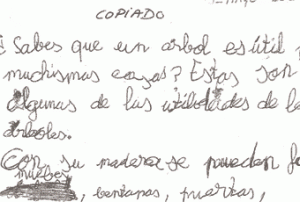 COPIADO
¿Sabes que un arbol es útil
muchismas cosas? Estas son
algunas de las utilidades de lo
árboles.
Con su madera se pueden
muebles
, bentanas, puertas,